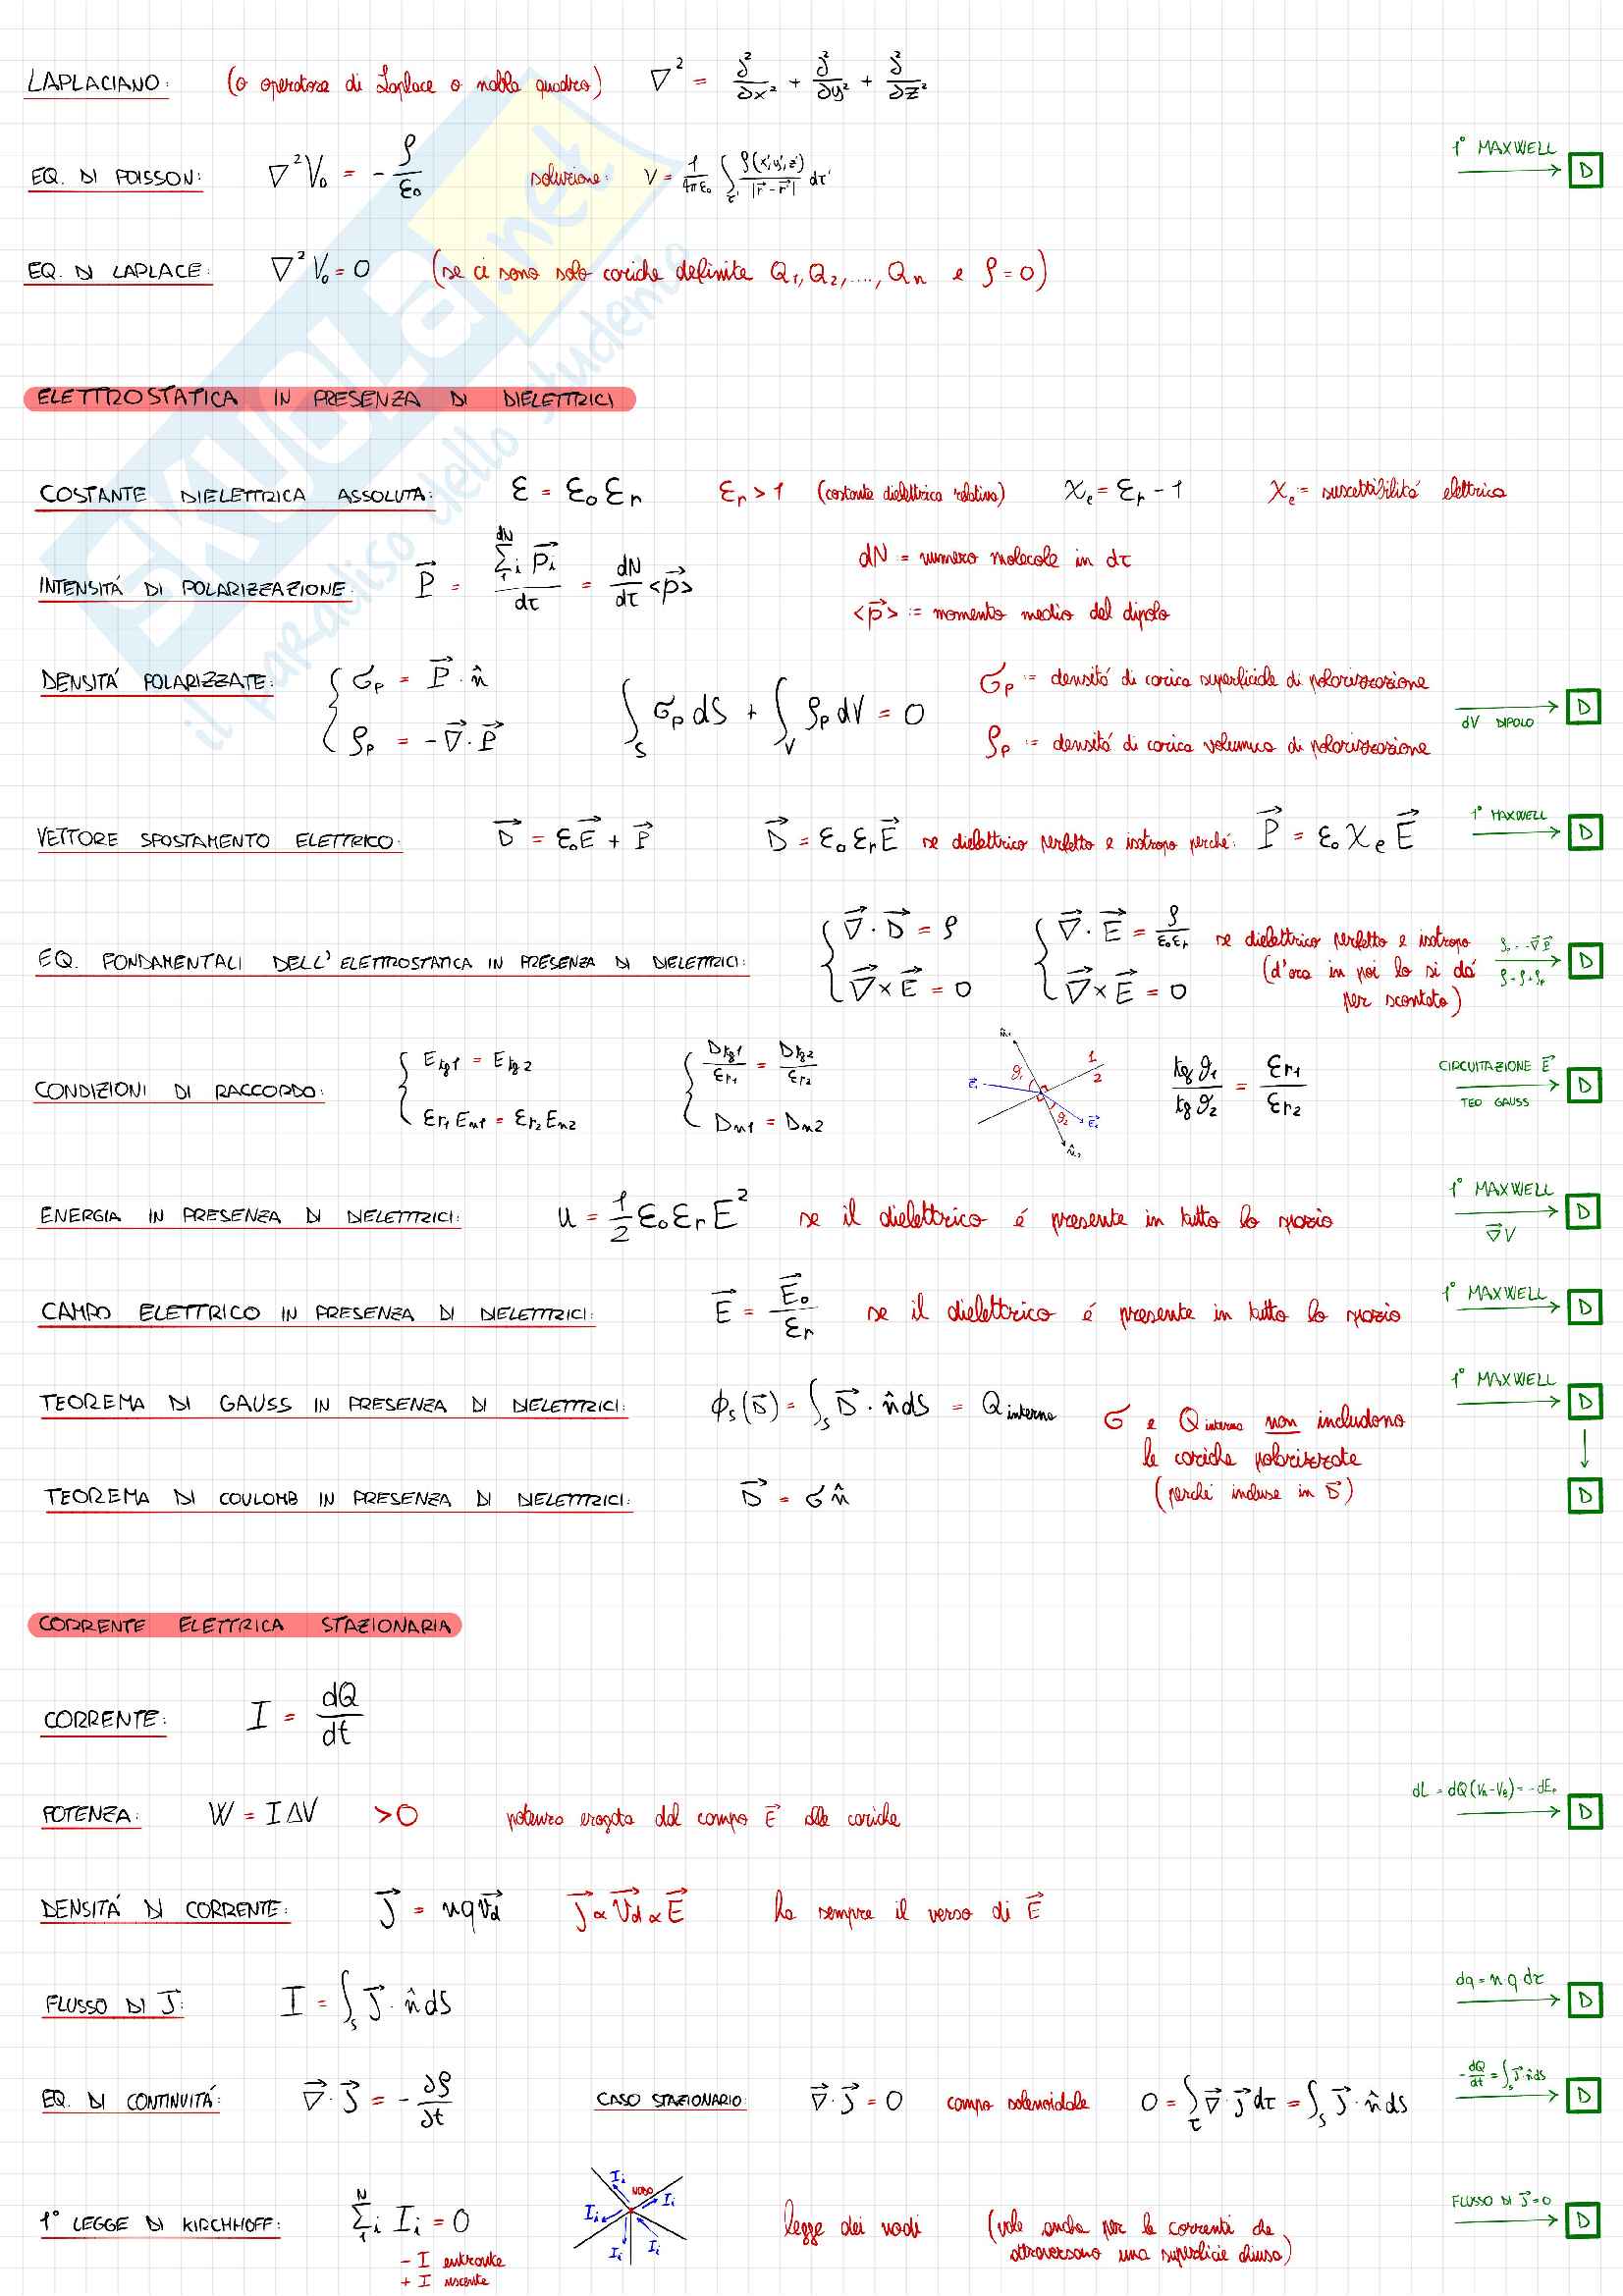 LAPLACIANO: (o operatore di Laplace o nabla quadro) ∇² = ∂²/∂x² + ∂²/∂y² + ∂²/∂z²
1° MAXWELL
EQ. DI POISSON: ∇²V₀ = -ρ/ε₀ soluzione: V = 1/4πε₀ ∫τ' ρ(x',y',z')/|r⃗ - r⃗'| dτ' D
EQ. DI LAPLACE: ∇²V₀ = 0 (se ci sono solo cariche definite Q₁, Q₂, ...., Qn e ρ = 0)
ELETTROSTATICA IN PRESENZA DI DIELETTRICI
COSTANTE DIELETTRICA ASSOLUTA: ε = ε₀εr εr > 1 (costante dielettrica relativa) χe = εr - 1 χe := suscettibilitá elettrica
INTENSITÁ DI POLARIZZAZIONE: P⃗ = Σi p⃗i / dτ = dN/dτ <p⃗> dN = numero molecole in dτ
<p⃗> := momento medio del dipolo
DENSITÁ POLARIZZATE: { σp = P⃗ · n̂ ∫S σp dS + ∫V ρp dV = 0 σp := densitá di carica superficiale di polarizzazione
ρp = -∇⃗ · P⃗ ρp := densitá di carica volumica di polarizzazione dV DIPOLO D
VETTORE SPOSTAMENTO ELETTRICO: D⃗ = ε₀E⃗ + P⃗ D⃗ = ε₀εrE⃗ se dielettrico perfetto e isotropo perché: P⃗ = ε₀χeE⃗ 1° MAXWELL D
EQ. FONDAMENTALI DELL'ELETTROSTATICA IN PRESENZA DI DIELETTRICI: { ∇⃗ · D⃗ = ρ { ∇⃗ · E⃗ = ρ/ε₀εr se dielettrico perfetto e isotropo
∇⃗ × E⃗ = 0 ∇⃗ × E⃗ = 0 (d'ora in poi lo si dá
per scontato) D
CONDIZIONI DI RACCORDO: { Etg1 = Etg2 { Dtg1/εr1 = Dtg2/εr2 tg θ1/tg θ2 = εr1/εr2 CIRCUITAZIONE E⃗
εr1 En1 = εr2 En2 Dn1 = Dn2 TEO GAUSS D
n̂₁ θ₁ 1 2 E⃗₁ θ₂ E⃗₂ n̂₂
ENERGIA IN PRESENZA DI DIELETTRICI: u = 1/2 ε₀εrE² se il dielettrico é presente in tutto lo spazio 1° MAXWELL ∇⃗V D
CAMPO ELETTRICO IN PRESENZA DI DIELETTRICI: E⃗ = E⃗₀/εr se il dielettrico é presente in tutto lo spazio 1° MAXWELL D
TEOREMA DI GAUSS IN PRESENZA DI DIELETTRICI: ϕs(D⃗) = ∫s D⃗ · n̂ dS = Qinterna σ e Qinterna non includono 1° MAXWELL D
le cariche polarizzate
TEOREMA DI COULOMB IN PRESENZA DI DIELETTRICI: D⃗ = σ n̂ (perché incluse in D⃗) D
CORRENTE ELETTRICA STAZIONARIA
CORRENTE: I = dQ/dt
POTENZA: W = I ΔV > 0 potenza erogata dal campo E⃗ alle cariche dL = dQ(VA-VB) = -dEp D
DENSITÁ DI CORRENTE: J⃗ = nqv⃗d J⃗ ∝ v⃗d ∝ E⃗ ha sempre il verso di E⃗
FLUSSO DI J⃗: I = ∫s J⃗ · n̂ dS dq = nq dτ D
EQ. DI CONTINUITÁ: ∇⃗ · J⃗ = -∂ρ/∂t CASO STAZIONARIO: ∇⃗ · J⃗ = 0 campo solenoidale 0 = ∫τ ∇⃗ · J⃗ dτ = ∫s J⃗ · n̂ dS -dQ/dt = ∫s J⃗ · n̂ dS D
1° LEGGE DI KIRCHHOFF: Σi Ii = 0 NODO Ii Ii Ii Ii Ii legge dei nodi (vale anche per le correnti che FLUSSO DI J⃗ = 0 D
- I entrante attraversano una superficie chiusa)
+ I uscente
SKUOLA.net
il paradiso dello studente